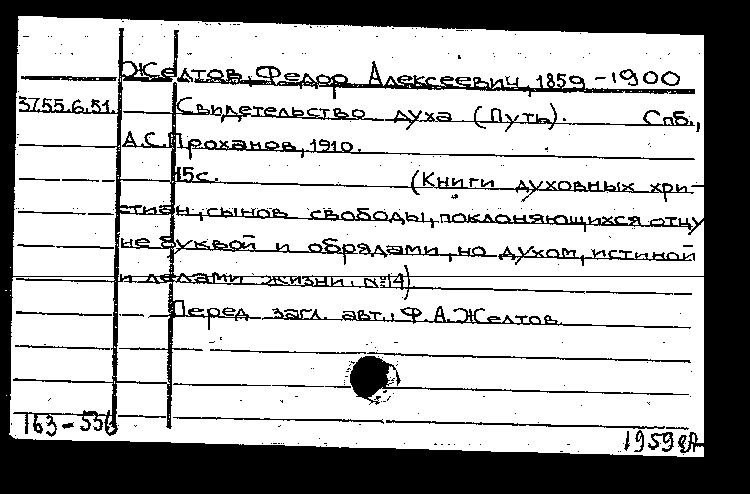 Желтов, Федор Алексеевич, 1859-1900
37.55.6.51. Свидетельство духа (Путь). Спб.,
А.С.Проханов, 1910.
15с. (Книги духовных хри-
стиан, сынов свободы, поклоняющихся отцу
не буквой и обрядами, но духом, истиной
и делами жизни. №14)
Перед загл. авт.: Ф.А.Желтов
163-536 1959